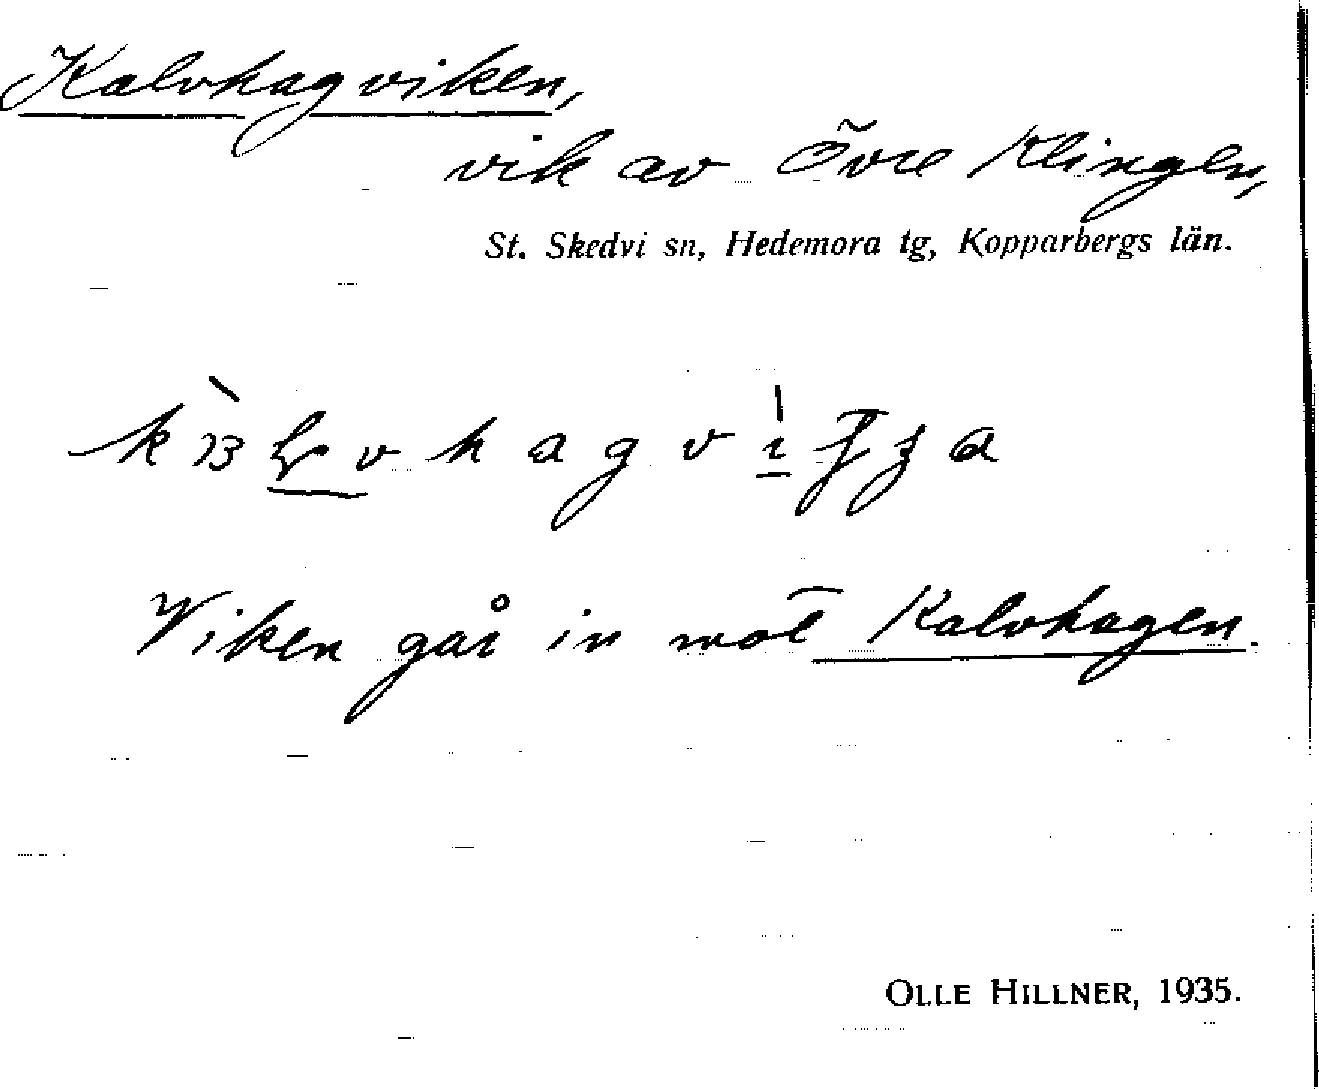 Kalvhagviken,
vik av Övre Klingen,
St. Skedvi sn, Hedemora tg, Kopparbergs län.
Viken går in mot Kalvhagen.
OLLE HILLNER, 1935.